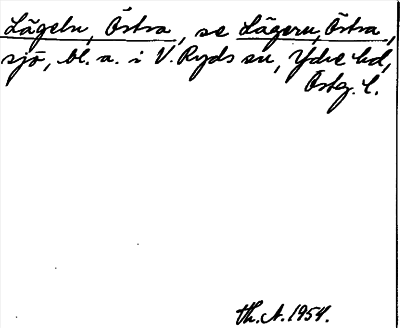 Lägeln, Östra, se Lägern, Östra,
sjö, bl. a. i V. Ryds sn, Ydre hd,
Östg. l.
th. A. 1954.